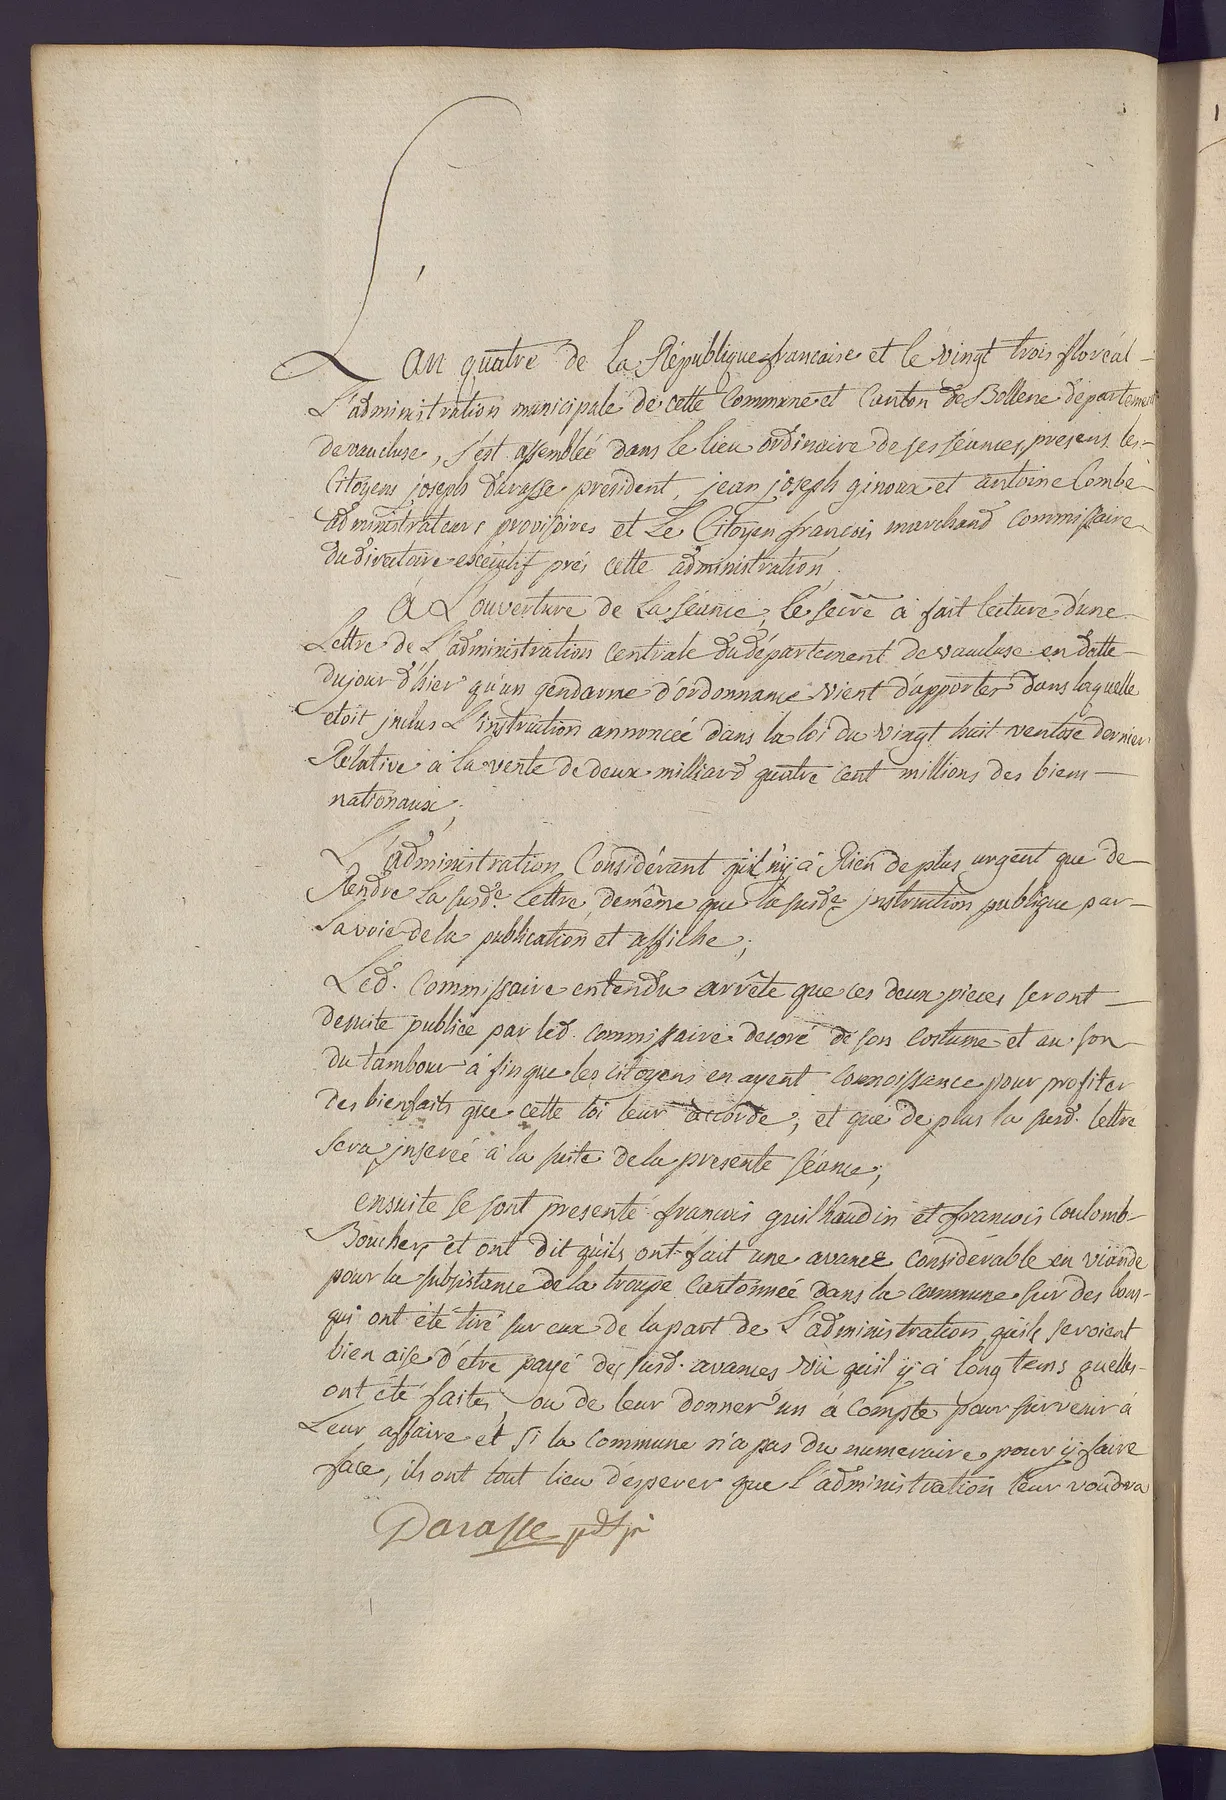 L'an quatre de la République francaise et le vingt trois floréal
L'administration municipale de cette Commune et Canton de Bollene département
de vaucluse, s'est assemblée dans le lieu ordinaire de ses séances, presens les
Citoyens joseph darasse président, jean joseph ginoux et antoine Combe
administrateurs provisoires et Le Citoyen francois marchand commissaire
du directoire exécutif prés cette administration,
A L'ouverture de la séance, le secre à fait lecture d'une
Lettre de L'administration centrale du département de vaucluse en datte
du jour d'hier qu'un gendarme d'ordonnance vient d'apporter dans laquelle
etoit inclus L'instruction annoncée dans la loi du vingt huit ventose dernier
Rélative à la vente de deux milliard quatre cent millions des biens
nationaux;
L'administration Considérant qu'il n'y à Rien de plus urgent que de
Rendre la susde. lettre, de même que la susde. instruction publique par
la voie de la publication et affiche;
Led. Commissaire entendu arrête que ces deux pieces seront
desuite publiée par led. commissaire decoré de son costume et au son
du tambour à fin que les citoyens en ayent connoissance pour profiter
des bienfaits que cette loi leur accorde; et que de plus la susd. lettre
sera inserée à la suite de la presente séance;
ensuite se sont presenté francois guilhaudin et francois Coulomb
Boucher, et ont dit qu'ils ont fait une avance considérable en viande
pour la subsistance de la troupe cantonnée dans la commune sur des bons
qui ont été tiré sur eux de la part de L'administration, qu'ils seroient
bien aise d'être payé des susd. avances vu qu'il y à long tems quelles
ont été faites, ou de leur donner un à compte pour survenir à
Leur affaire et si la commune n'a pas du numeraire pour y faire
face, ils ont tout lieu d'esperer que l'administration leur voudra
Darasse pdt